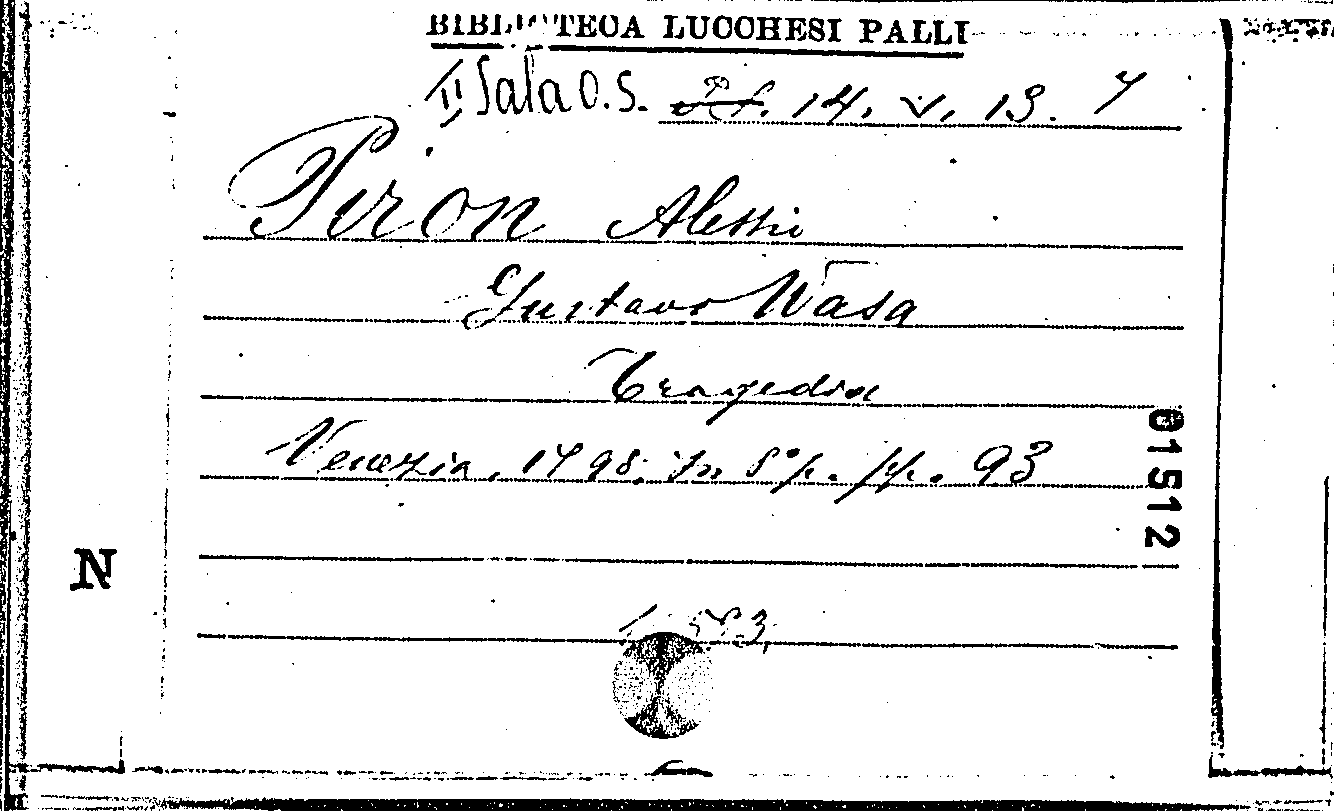 BIBLIOTECA LUCCHESI PALLI
II Sala O.S. 14. V. 13. 7
Piron Alessi
Gustavo Wasa
Tragedia
Venezia, 1798. In 8º p. pp. 93
01512
N